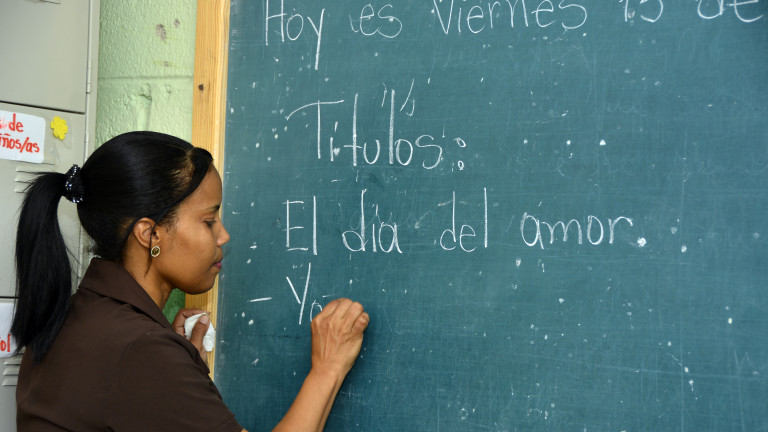 Hoy es Viernes 15 de
Títulos:
El dia del amor
- Yo
de
ños/as
ol